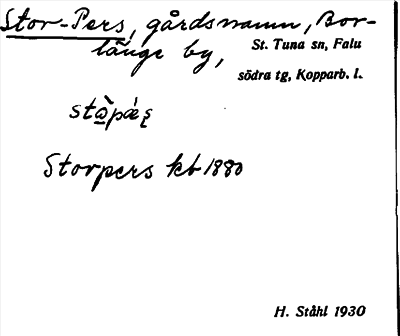 Stor-Pers, gårdsnamn, Bor-
länge by, St. Tuna sn, Falu
södra tg, Kopparb. l.
Storpers kb 1880
H. Ståhl 1930